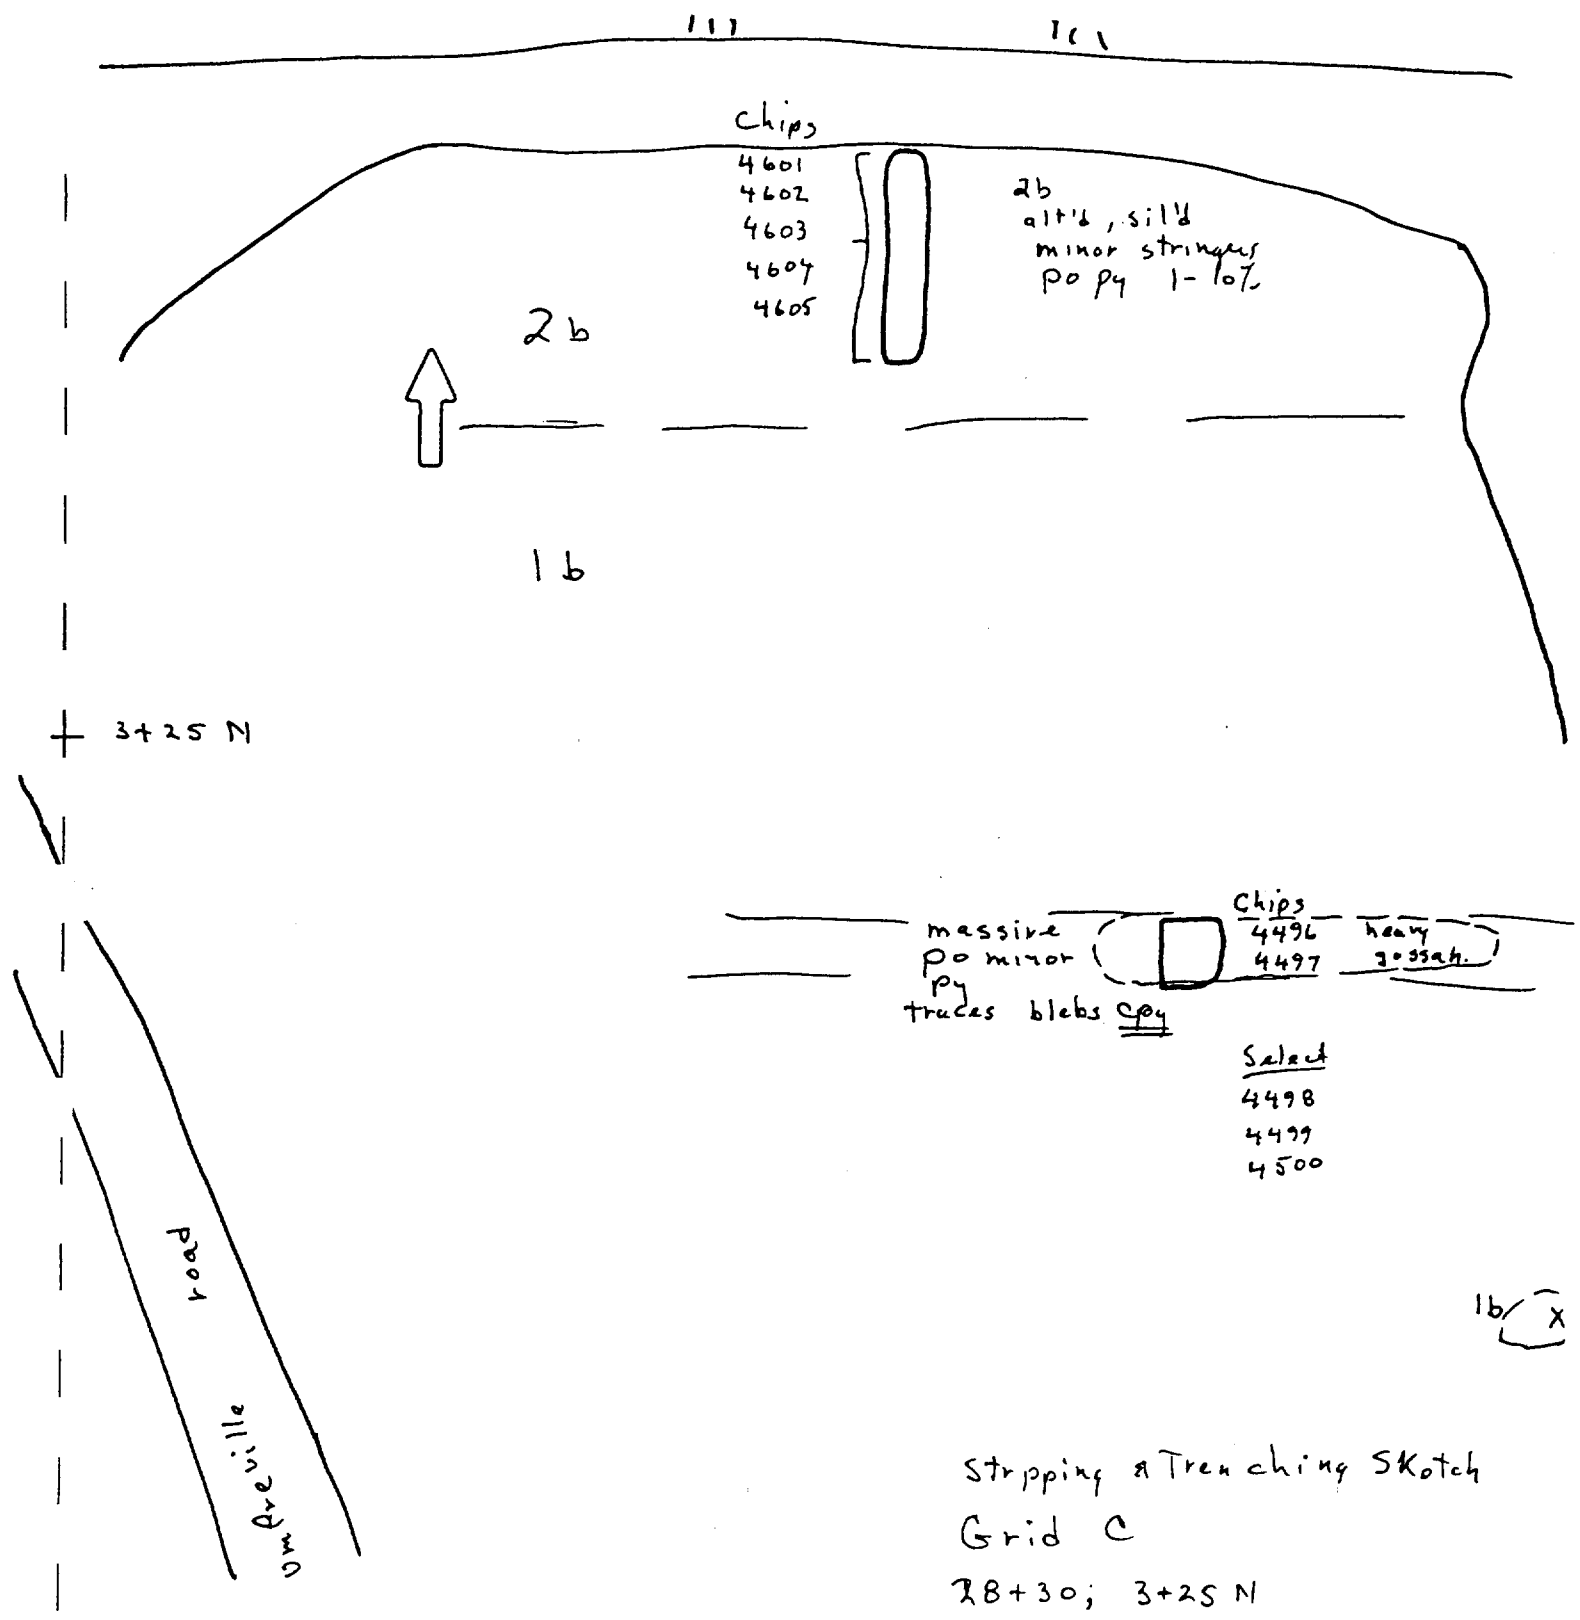 Chips
4601
4602
4603
4604
4605
2b
alt'd, sil'd
minor stringers
po py 1-10%
2b
1b
3+25 N
massive
po minor
py
traces blebs cpy
Chips
4496
4497
heavy
gossan.
Select
4498
4499
4500
1b
X
road
Umfreville
Strpping & Trenching Sketch
Grid C
28+30; 3+25 N